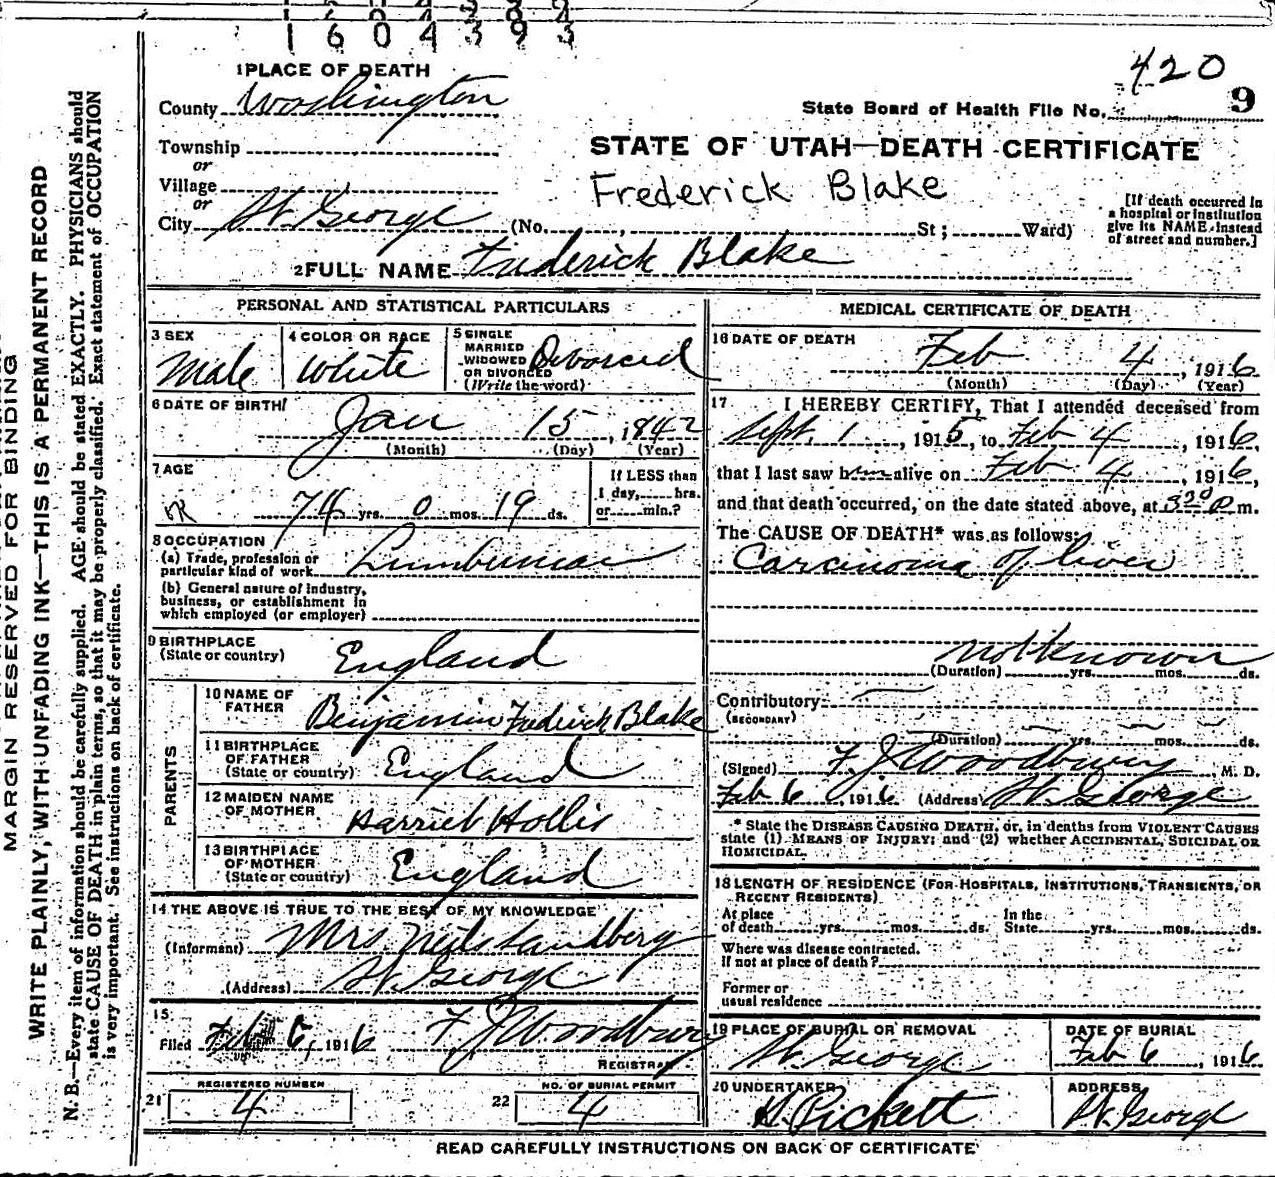 1 6 0 4 3 9 3
420
9
1 PLACE OF DEATH
County Washington
State Board of Health File No.
Township
or
Village
or
City St. George (No. , St ; Ward)
STATE OF UTAH—DEATH CERTIFICATE
Frederick Blake
[If death occurred in
a hospital or institution
give its NAME instead
of street and number.]
2 FULL NAME Frederick Blake
PERSONAL AND STATISTICAL PARTICULARS
3 SEX
Male
4 COLOR OR RACE
White
5 SINGLE
MARRIED
WIDOWED
OR DIVORCED
(Write the word)
Divorced
6 DATE OF BIRTH
Jan 15, 1842
(Month) (Day) (Year)
7 AGE
74 yrs. 0 mos. 19 ds.
If LESS than
1 day, hrs.
or min.?
8 OCCUPATION
(a) Trade, profession or
particular kind of work Lumberman
(b) General nature of industry,
business, or establishment in
which employed (or employer)
9 BIRTHPLACE
(State or country) England
PARENTS
10 NAME OF
FATHER Benjamin Fredrick Blake
11 BIRTHPLACE
OF FATHER
(State or country) England
12 MAIDEN NAME
OF MOTHER Harriet Hollis
13 BIRTHPLACE
OF MOTHER
(State or country) England
14 THE ABOVE IS TRUE TO THE BEST OF MY KNOWLEDGE
(Informant) Mrs Neils Sandberg
(Address) St. George
15
Filed Feb 6, 1916 F J Woodbury
REGISTRAR
REGISTERED NUMBER
21 4
NO. OF BURIAL PERMIT
22 4
MEDICAL CERTIFICATE OF DEATH
16 DATE OF DEATH
Feb 4, 1916
(Month) (Day) (Year)
17 I HEREBY CERTIFY, That I attended deceased from
Sept. 1, 1915, to Feb 4, 1916,
that I last saw him alive on Feb 4, 1916,
and that death occurred, on the date stated above, at 3:20 P m.
The CAUSE OF DEATH* was as follows:
Carcinoma of liver
not known
(Duration) yrs. mos. ds.
Contributory
(SECONDARY)
(Duration) yrs. mos. ds.
(Signed) F. J. Woodbury, M. D.
Feb 6, 1916 (Address) St. George
* State the DISEASE CAUSING DEATH, or, in deaths from VIOLENT CAUSES
state (1) MEANS OF INJURY; and (2) whether ACCIDENTAL, SUICIDAL OR
HOMICIDAL.
18 LENGTH OF RESIDENCE (FOR HOSPITALS, INSTITUTIONS, TRANSIENTS, OR
RECENT RESIDENTS)
At place
of death yrs. mos. ds.
In the
State yrs. mos. ds.
Where was disease contracted.
If not at place of death?
Former or
usual residence
19 PLACE OF BURIAL OR REMOVAL
St. George
DATE OF BURIAL
Feb 6, 1916
20 UNDERTAKER
Pickett
ADDRESS
St. George
READ CAREFULLY INSTRUCTIONS ON BACK OF CERTIFICATE
MARGIN RESERVED FOR BINDING
WRITE PLAINLY, WITH UNFADING INK—THIS IS A PERMANENT RECORD
N. B.—Every item of information should be carefully supplied. AGE should be stated EXACTLY. PHYSICIANS should
state CAUSE OF DEATH in plain terms, so that it may be properly classified. Exact statement of OCCUPATION
is very important. See instructions on back of certificate.